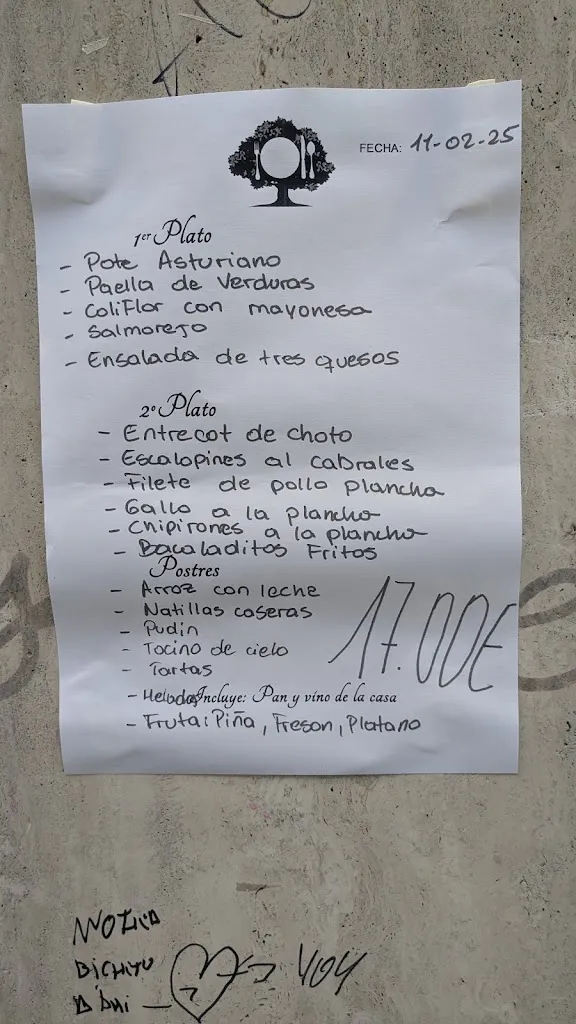 FECHA: 11-02-25
1er Plato
- Pote Asturiano
- Paella de Verduras
- Coliflor con mayonesa
- Salmorejo
- Ensalada de tres quesos
2º Plato
- Entrecot de choto
- Escalopines al cabrales
- Filete de pollo plancha
- Gallo a la plancha
- Chipirones a la plancha
- Bacaladitos Fritos
Postres
- Arroz con leche
- Natillas caseras
- Pudin
- Tocino de cielo
- Tartas
17.00€
- Helados Incluye: Pan y vino de la casa
- Fruta: Piña, Freson, Platano